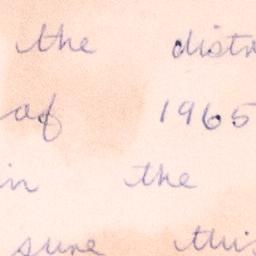 the
of 1965
in the
sure this